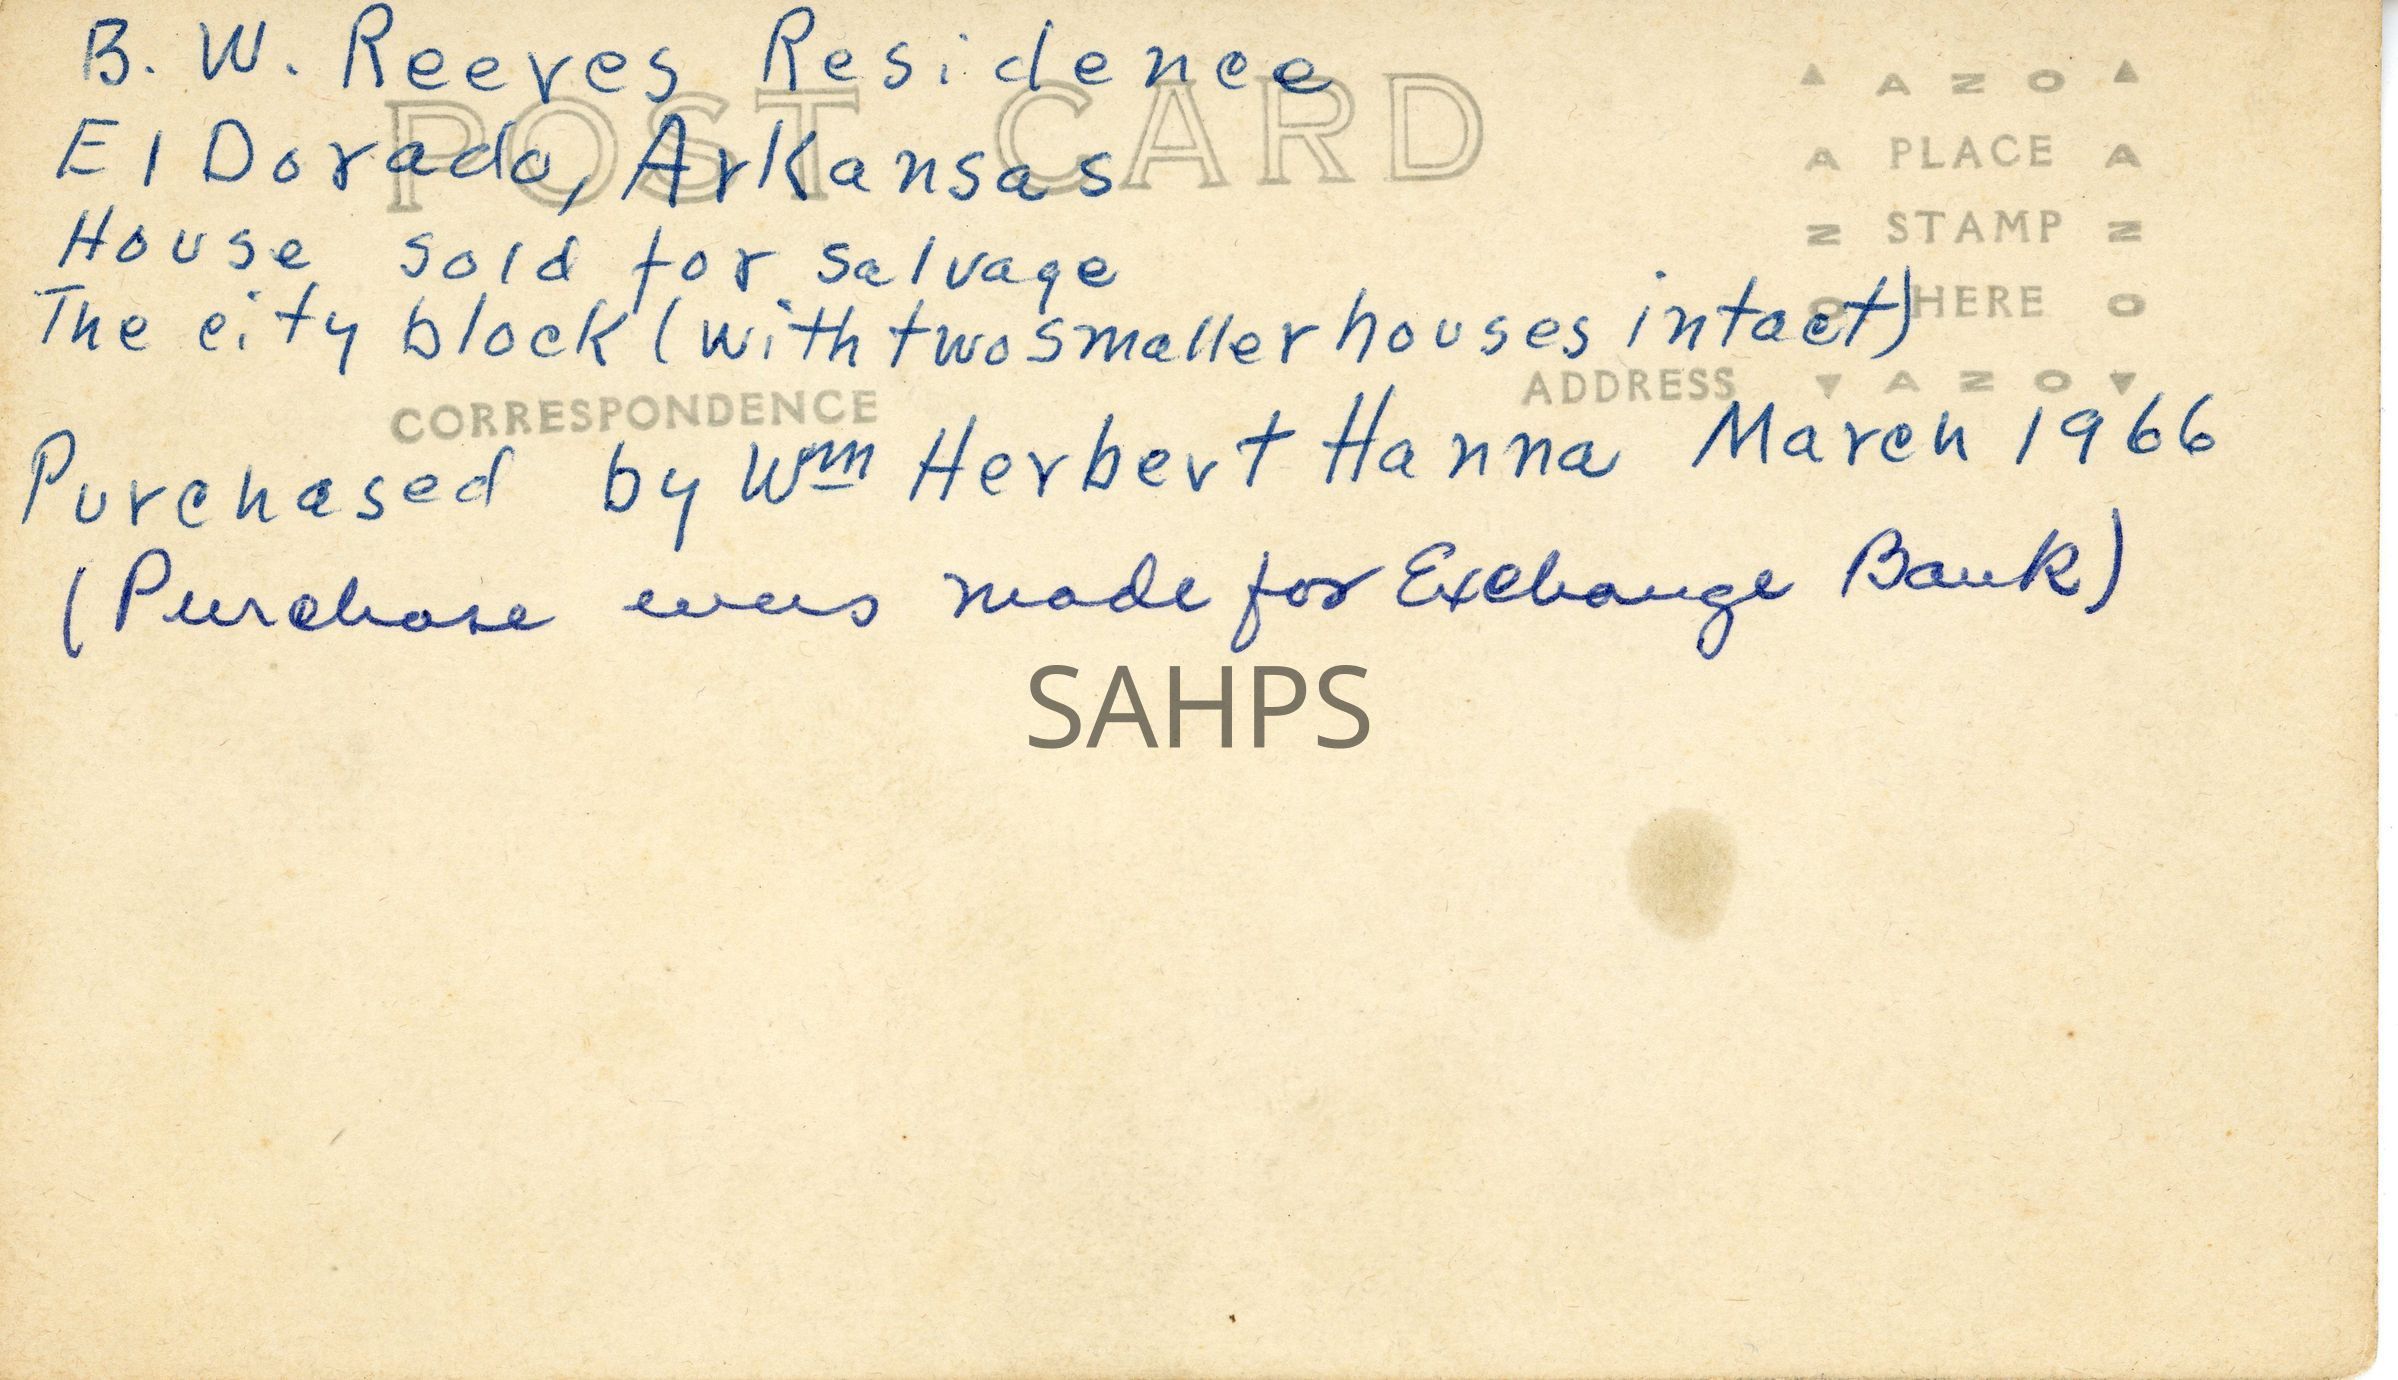 B. W. Reeves Residence
POST CARD
El Dorado, Arkansas
House sold for salvage
The city block (with two smaller houses intact)
Purchased by Wm Herbert Hanna March 1966
(Purchase was made for Exchange Bank)
CORRESPONDENCE
ADDRESS
AZO
PLACE
STAMP
HERE
AZO
AZO
AZO
SAHPS